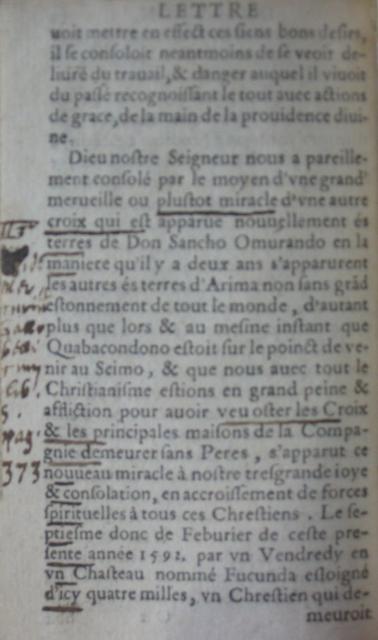 LETTRE
uoit mettre en effect ces siens bons desirs,
il se consoloit neantmoins de se veoir de-
liuré du trauail, & danger auquel il viuoit
du passé recognoissant le tout auec actions
de grace, de la main de la prouidence diui-
ne.
Dieu nostre Seigneur nous a pareille-
ment consolé par le moyen d'vne grand'
merueille ou plustot miracle d'vne autre
croix qui est apparue nouuellement és
terres de Don Sancho Omurando en la
maniere qu'il y a deux ans s'apparurent
les autres és terres d'Arima non sans grãd
estonnement de tout le monde, d'autant
plus que lors & au mesme instant que
Quabacondono estoit sur le poinct de ve-
nir au Scimo, & que nous auec tout le
Christianisme estions en grand peine &
affliction pour auoir veu oster les Croix
& les principales maisons de la Compa-
gnie demeurer sans Peres, s'apparut ce
nouueau miracle à nostre tresgrande ioye
& consolation, en accroissement de forces
spirituelles à tous ces Chrestiens. Le se-
ptiesme donc de Feburier de ceste pre-
sente année 1592. par vn Vendredy en
vn Chasteau nommé Fucunda esloigné
d'icy quatre milles, vn Chrestien qui de-
meuroit
pag.
373